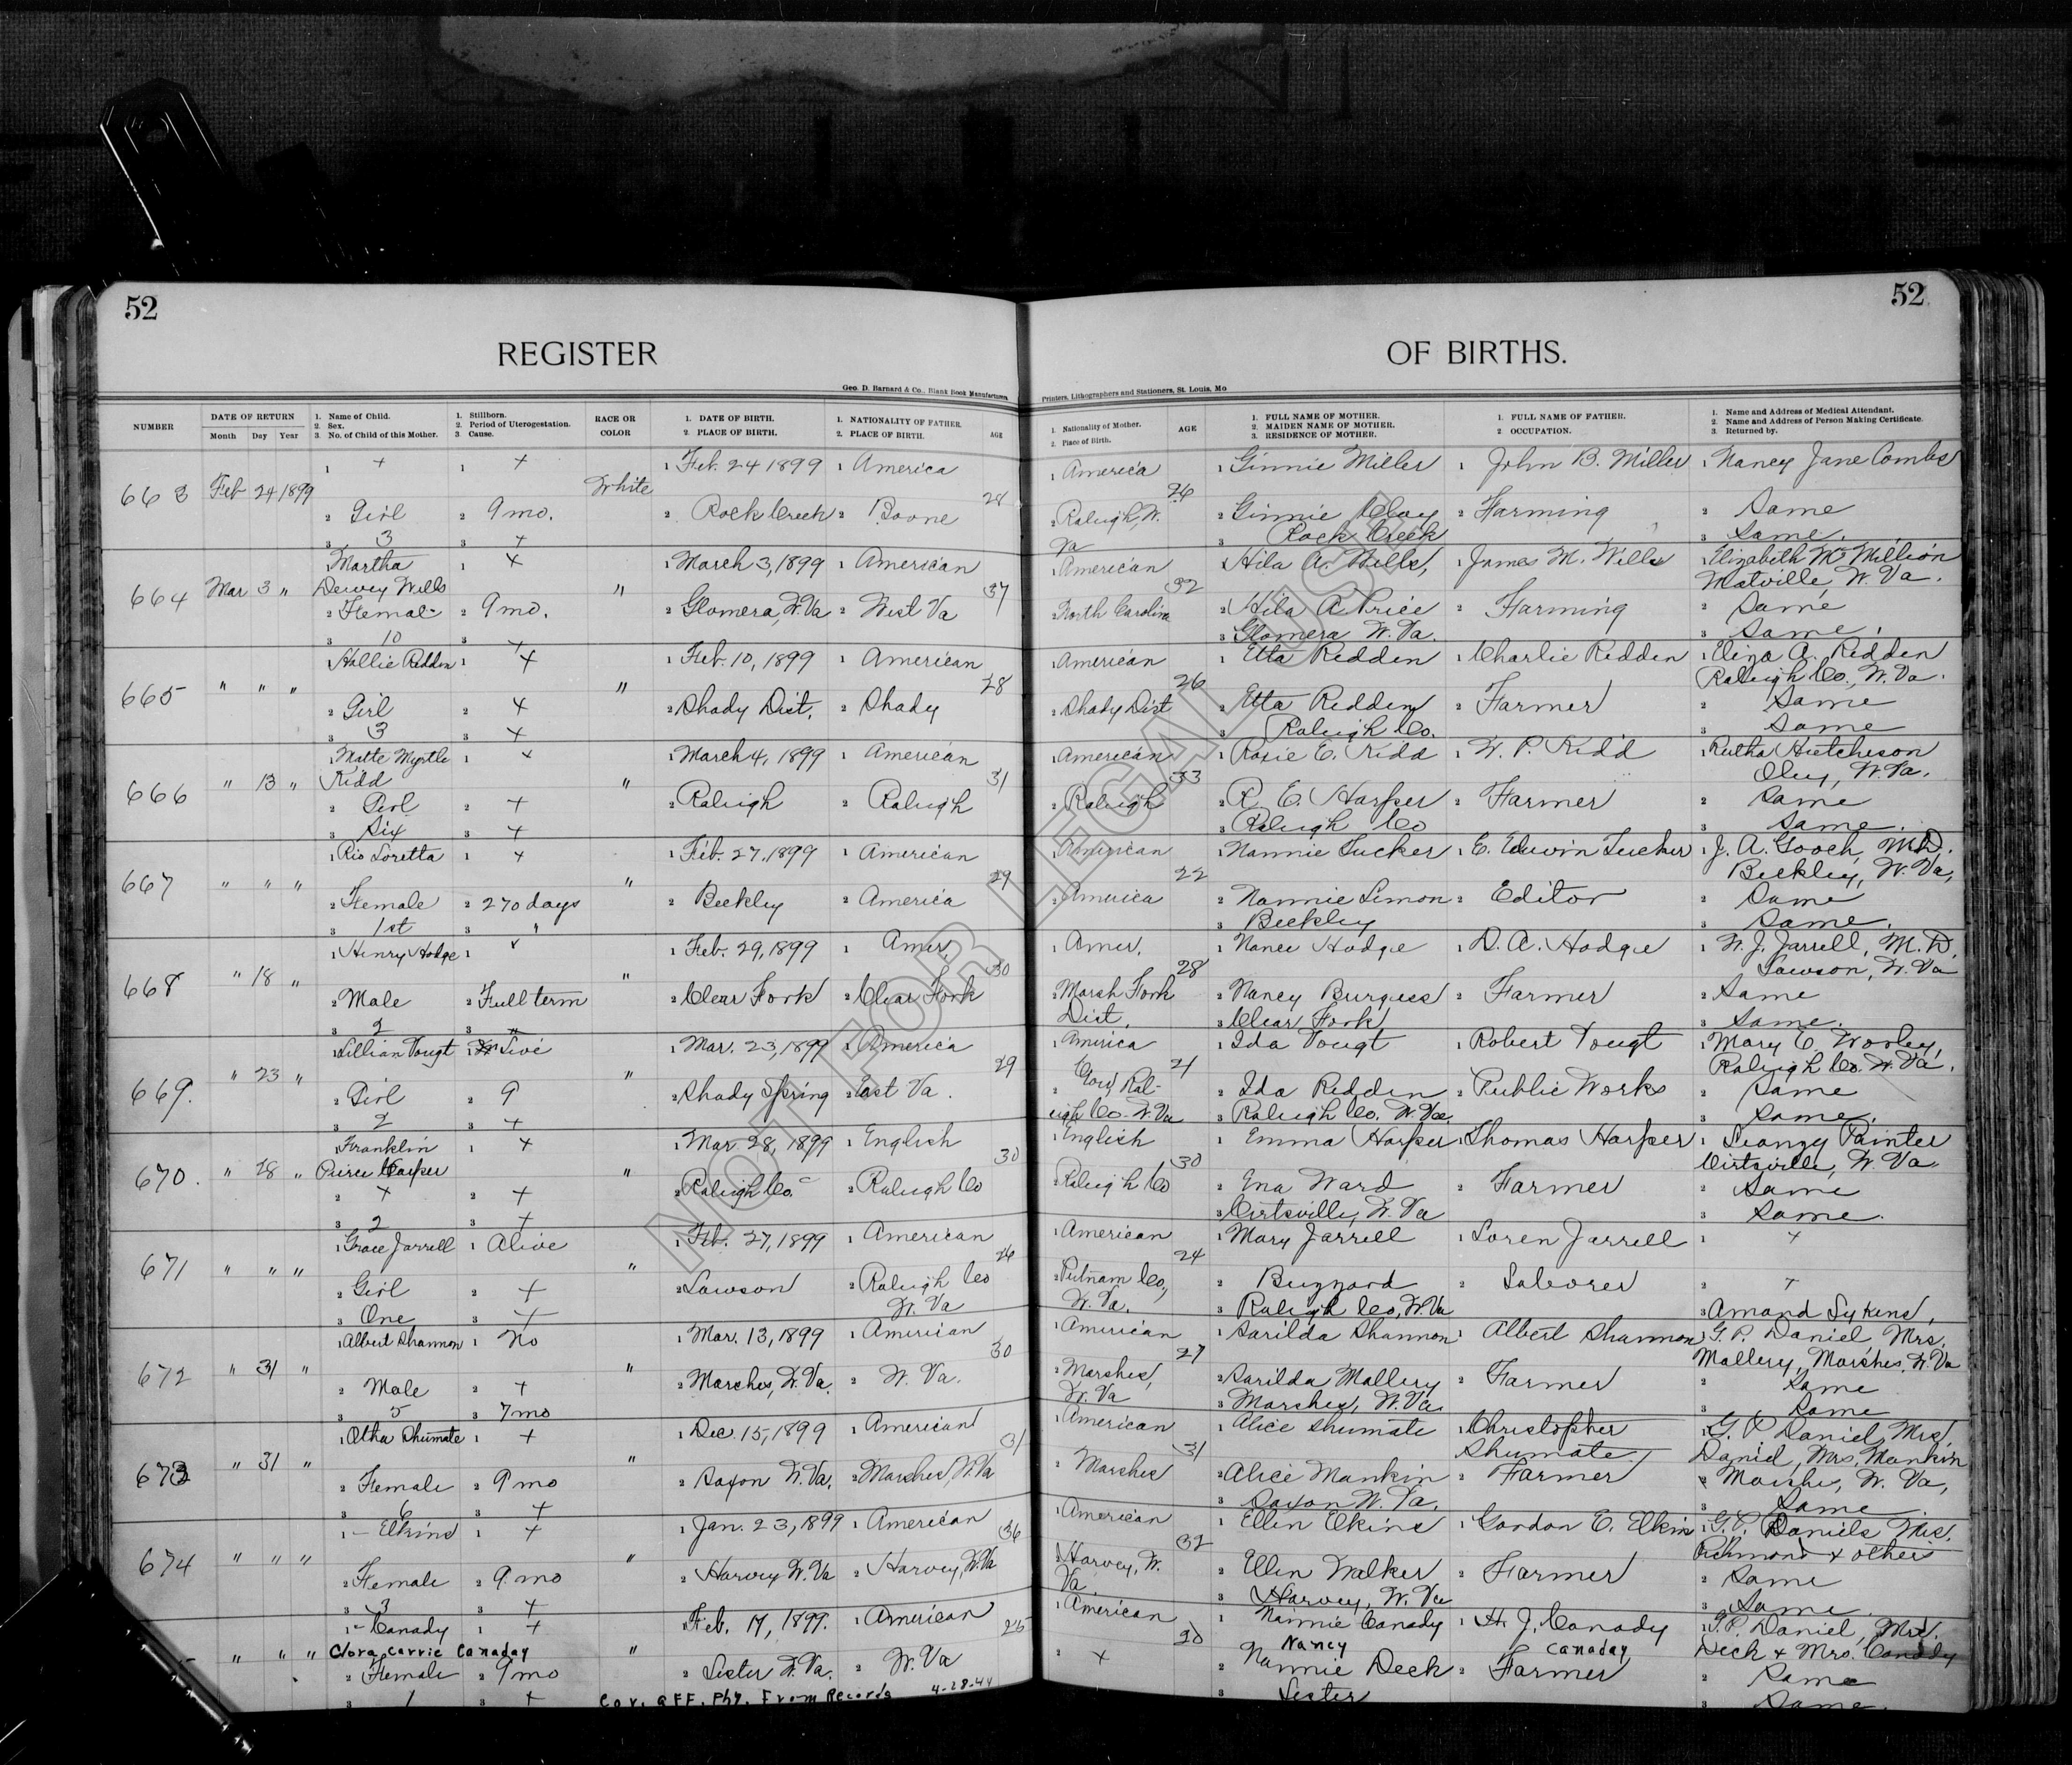 52
52
REGISTER
OF BIRTHS.
Geo. D. Barnard & Co., Blank Book Manufacturers
Printers, Lithographers and Stationers, St. Louis, Mo
NUMBER
DATE OF RETURN
Month Day Year
1. Name of Child.
2. Sex.
3. No. of Child of this Mother.
1. Stillborn.
2. Period of Uterogestation.
3. Cause.
RACE OR COLOR
1. DATE OF BIRTH.
2. PLACE OF BIRTH.
1. NATIONALITY OF FATHER.
2. PLACE OF BIRTH.
AGE
1. Nationality of Mother.
2. Place of Birth.
AGE
1. FULL NAME OF MOTHER.
2. MAIDEN NAME OF MOTHER.
3. RESIDENCE OF MOTHER.
1. FULL NAME OF FATHER.
2. OCCUPATION.
1. Name and Address of Medical Attendant.
2. Name and Address of Person Making Certificate.
3. Returned by.
1 + 1 + 1 Feb. 24 1899 1 America 1 America 1 Ginnie Miller 1 John B. Miller 1 Nancy Jane Combs
663 Feb 24 1899 White 28 26
2 Girl 2 9 mo. 2 Rock Creek 2 Boone 2 Raleigh, W. Va 2 Ginnie Clay 2 Farming 2 Same
3 3 3 + 3 Rock Creek 3 Same.
1 Martha 1 + 1 March 3, 1899 1 American 1 American 1 Hila A. Wills, 1 James M. Wills 1 Elizabeth McMillion
664 Mar 3 " Dewey Wills " 37 32 Matville, W. Va.
2 Femal 2 9 mo. 2 Glomera, W. Va 2 West Va 2 North Carolina 2 Hila A. Price 2 Farming 2 Same
3 10 3 + 3 Glomera W. Va. 3 Same.
1 Hallie Redden 1 + 1 Feb. 10, 1899 1 American 1 American 1 Etta Redden 1 Charlie Redden 1 Eliza A. Redden
665 " " " " 28 26 Raleigh Co., W. Va.
2 Girl 2 + 2 Shady Dist. 2 Shady 2 Shady Dist 2 Etta Redden 2 Farmer 2 Same
3 3 3 + 3 Raleigh Co. 3 Same
1 Matte Myrtle 1 + 1 March 4, 1899 1 American 1 American 1 Roxie E. Kidd 1 W. P. Kidd 1 Rutha Hutcheson
666 " 13 " Kidd " 31 33 W. Va.
2 Girl 2 + 2 Raleigh 2 Raleigh 2 Raleigh 2 R. E. Harper 2 Farmer 2 Same
3 Six 3 + 3 Raleigh Co 3 Same.
1 Rio Loretta 1 + 1 Feb. 27, 1899 1 American 1 American 1 Nannie Tucker 1 E. Edwin Tucker 1 J. A. Gooch, M.D.
667 " " " " 29 22 Beckley, W. Va,
2 Female 2 270 days 2 Beckley 2 America 2 America 2 Nannie Simon 2 Editor 2 Same
3 1st 3 " 3 Beckley 3 Same.
1 Henry Hodge 1 + 1 Feb. 29, 1899 1 Amer. 1 Amer. 1 Nance Hodge 1 D. A. Hodge 1 W. J. Jarrell, M. D.
668 " 18 " " 30 28 Lawson, W. Va
2 Male 2 Full term 2 Clear Fork 2 Clear Fork 2 Marsh Fork Dist. 2 Nancy Burgess 2 Farmer 2 Same
3 2 3 " 3 Clear Fork 3 Same.
1 Lillian Vougt 1 Live 1 Mar. 23, 1899 1 America 1 America 1 Ida Vougt 1 Robert Vougt 1 Mary E. Worley,
669. " 23 " " 29 21 Raleigh Co. W. Va.
2 Girl 2 9 2 Shady Spring 2 East Va. 2 Raleigh Co. W. Va 2 Ida Redden 2 Public Works 2 Same
3 2 3 + 3 Raleigh Co. W. Va. 3 Same.
1 Franklin 1 + 1 Mar. 28, 1899 1 English 1 English 1 Emma Harper 1 Thomas Harper 1 Painter
670. " 28 " Pierce Harper " 30 30 Cirtsville, W. Va
2 + 2 + 2 Raleigh Co. 2 Raleigh Co 2 Raleigh Co 2 Ena Ward 2 Farmer 2 Same
3 2 3 + 3 Cirtsville, W. Va 3 Same.
1 Grace Jarrell 1 Alive 1 Feb. 27, 1899 1 American 1 American 1 Mary Jarrell 1 Loren Jarrell 1 +
671 " " " " 26 24
2 Girl 2 + 2 Lawson 2 Raleigh Co W. Va 2 Putnam Co, W. Va. 2 Buzzard 2 Laborer 2 +
3 One 3 + 3 Raleigh Co, W. Va 3 Amand Sykens,
1 Albert Shannon 1 No 1 Mar. 13, 1899 1 American 1 American 1 Sarilda Shannon 1 Albert Shannon 1 G. P. Daniel, Mrs.
672 " 31 " " 30 27 Mallery, Marshes, W. Va
2 Male 2 + 2 Marshes, W. Va. 2 W. Va. 2 Marshes, W. Va 2 Sarilda Mallery 2 Farmer 2 Same
3 5 3 7 mo 3 Marshes, W. Va. 3 Same
1 Otha Shumate 1 + 1 Dec. 15, 1899 1 American 1 American 1 Alice Shumate 1 Christopher Shumate 1 G. P. Daniel, Mrs.
673 " 31 " " 31 31 Daniel, Mrs. Mankin
2 Female 2 9 mo 2 Saxon W. Va. 2 Marshes, W. Va 2 Marshes 2 Alice Mankin 2 Farmer 2 Marshes, W. Va,
3 6 3 + 3 Saxon W. Va. 3 Same.
1 - Elkins 1 + 1 Jan. 23, 1899 1 American 1 American 1 Ellen Elkins 1 Gordon C. Elkin 1 G. P. Daniels Mrs.
674 " " " " 36 32 Richmond & others
2 Female 2 9 mo 2 Harvey W. Va 2 Harvey, W. Va 2 Harvey, W. Va. 2 Ellen Walker 2 Farmer 2 Same
3 3 3 + 3 Harvey, W. Va 3 Same.
1 - Canady 1 + 1 Feb. 17, 1899. 1 American 1 American 1 Nannie Canady 1 H. J. Canady 1 G. P. Daniel, Mrs.
" " " Clora Carrie Canaday " 25 20 Nancy Canaday Deck & Mrs. Canady
2 Female 2 9 mo 2 Lester W. Va. 2 W. Va 2 + 2 Nannie Deck 2 Farmer 2 Same
3 1 3 + Cor. aff. Phy. From Records 4-28-44 3 Lester 3 Same.
NOT FOR LEGAL USE